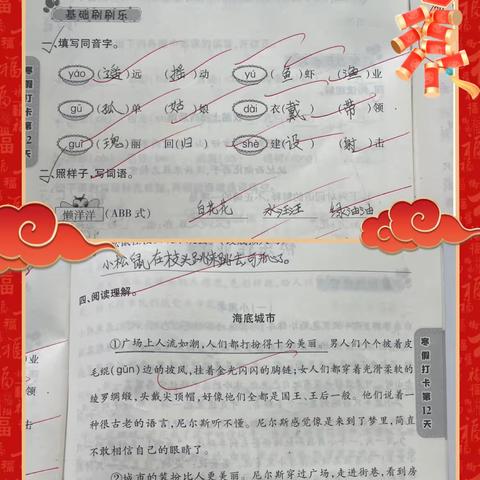 基础刷刷乐
一、填写同音字。
yáo (遥)远 (摇)动 yú (鱼)虾 (渔)业
gū (孤)单 (姑)娘 dài 衣(戴) (带)领
guī (瑰)丽 回(归) shè 建(设) (射)击
二、照样子,写词语。
懒洋洋 (ABB式) 白花花 水汪汪 绿油油
寒假打卡第12天
小松鼠在枝头跳来跳去可开心了。
四、阅读理解。
海底城市
①广场上人流如潮,人们都打扮得十分美丽。男人们个个披着皮
毛绲(gǔn)边的披风,挂着金光闪闪的胸链;女人们都穿着光滑柔软的
绫罗绸缎,头戴尖顶帽,好像他们全都是国王、王后一般。他们说着一
种很古老的语言,尼尔斯听不懂。尼尔斯感觉像是来到了梦里,简直
不敢相信自己的眼睛了。
②城市的装扮比人更美丽。尼尔斯穿过广场,走进街巷,看到房
寒假打卡第12天